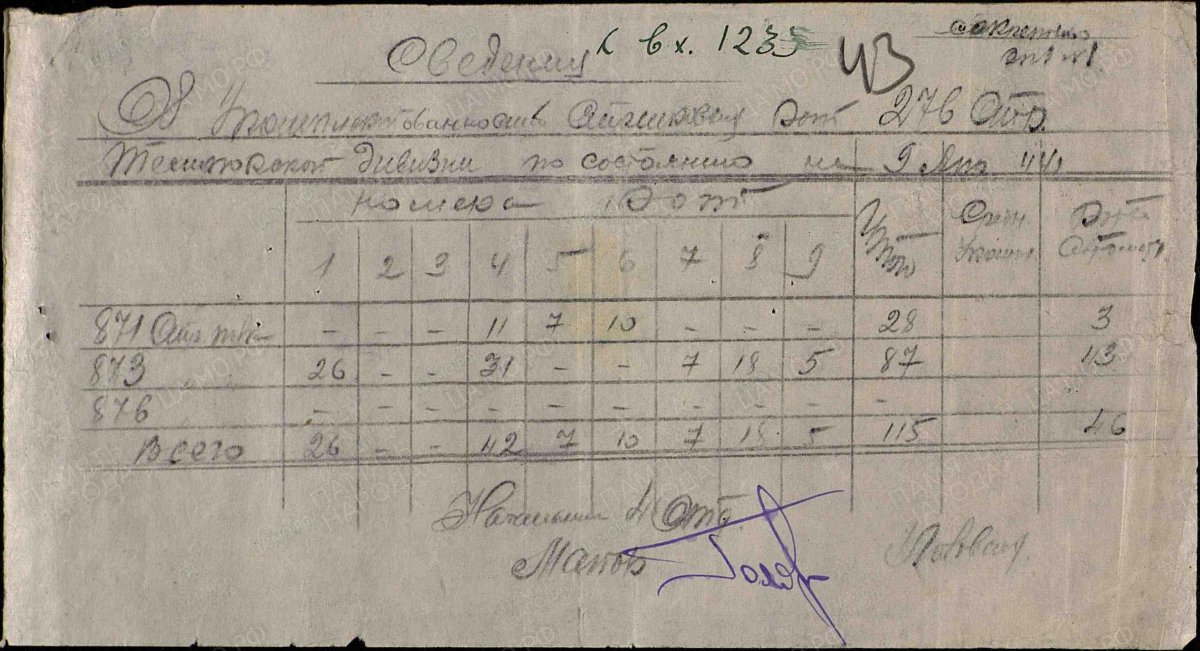 к вх. 1235
секретно
экз №1
43
Сведения
Об Укомплектованности Стрелковых Рот 276 Стр.
дивизии по состоянию на 9 Апр. 44г
Номера Рот
Итого
1 2 3 4 5 6 7 8 9
871 Стр. полк – – – 11 7 10 – – – 28 3
873 " 26 – – 31 – – 7 18 5 87 43
876 – – – – – – – – – –
Всего 26 – – 42 7 10 7 18 5 115 46
Начальник 4 Отд.
Майор